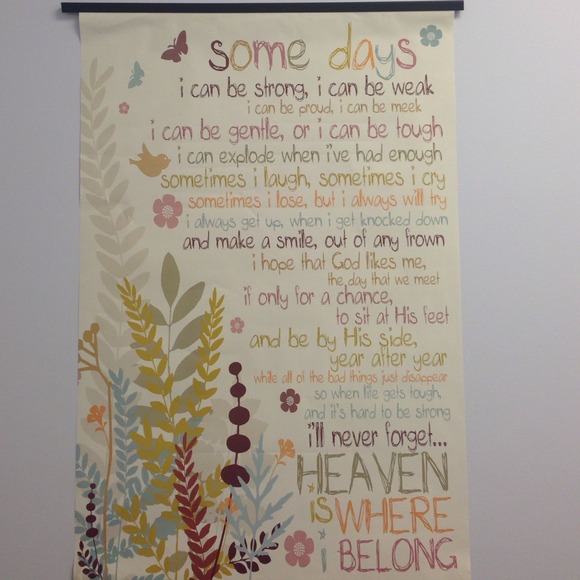 some days
i can be strong, i can be weak
i can be proud, i can be meek
i can be gentle, or i can be tough
i can explode when i've had enough
sometimes i laugh, sometimes i cry
sometimes i lose, but i always will try
i always get up, when i get knocked down
and make a smile, out of any frown
i hope that God likes me,
the day that we meet
if only for a chance,
to sit at His feet
and be by His side,
year after year
while all of the bad things just disappear
so when life gets tough,
and it's hard to be strong
i'll never forget...
HEAVEN
iS WHERE
i BELONG